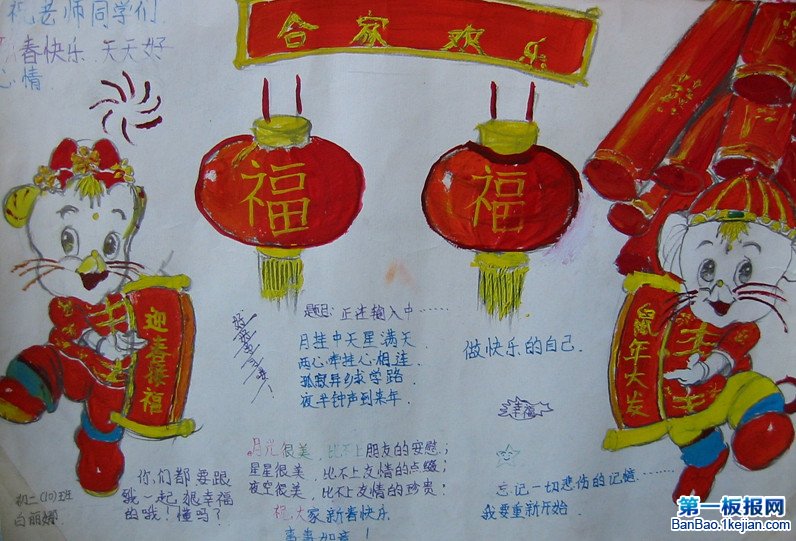 祝老师同学们
春快乐 天天好
心情
合家欢乐
福
福
迎春接福
鼠年大发
题目:正在输入中……
月挂中天星满天
两心牵挂心相连
孤寂异乡求学路
夜半钟声到来年
做快乐的自己.
幸福
月光很美,比不上朋友的安慰;
星星很美,比不上友情的点缀;
夜空很美,比不上友情的珍贵;
祝大家新春快乐
事事如意!
你们都要跟
我一起很幸福
的哦!懂吗?
忘记一切悲伤的记忆……
我要重新开始.
初二(10)班
白丽娜
第一板报网
BanBao.1kejian.com